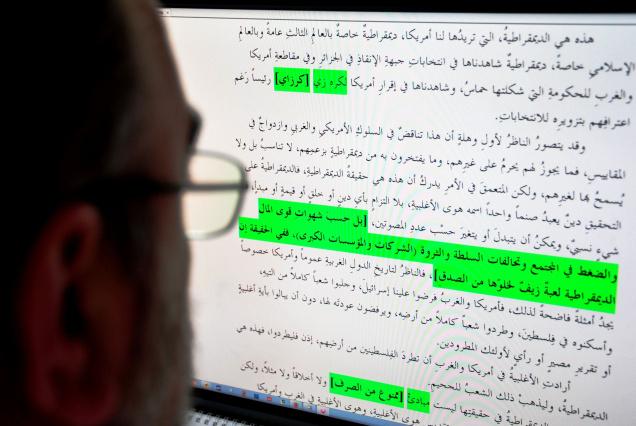 هذه هي الديمقراطيةُ، التي تريدُها لنا أمريكا، ديمقراطيةٌ خاصةٌ بالعالمِ الثالثِ عامةً وبالعالمِ
الإسلامي خاصةً، ديمقراطيةٌ شاهدناها في انتخاباتِ جبهةِ الإنقاذِ في الجزائرِ وفي مقاطعةِ أمريكا
والغربِ للحكومةِ التي شكلتها حماسُ، وشاهدناها في إقرارِ أمريكا لكره زي [كرزاي] رئيساً رَغم
اعترافِهم بتزويرِه للانتخاباتِ.
وقد يتصورُ الناظرُ لأولِ وهلةٍ أن هذا تناقضٌ في السلوكِ الأمريكي والغربي وازدواجٌ في
المقاييسِ، فما يجوزُ لهم يحرمُ على غيرِهم، وما يفتخرون به من ديمقراطيةٍ بزعمِهم، لا تناسبُ بل ولا
يُسمحُ بها لغيرِهم، ولكن المتعمقَ في الأمرِ يدركُ أن هذه هي حقيقةُ الديمقراطيةِ، فالديمقراطيةُ على
التحقيقِ دينٌ يعبدُ صنماً واحداً اسمه هوى الأغلبيةِ، بلا التزامٍ بأي دينٍ أو خلقٍ أو قيمةٍ أو مبدأٍ،
شيءٍ نسبيٌ، ويمكنُ أن يتبدلَ أو يتغيرَ حسْب عددِ المصوتين، [بل حسب شهوات قوى المال
والضغط في المجتمع وتحالفات السلطة والثروة (الشركات والمؤسسات الكبرى)، ففي الحقيقة إن
الديمقراطية لعبةٌ زيفٌ خلوّها من الصدق]، فالناظرُ لتاريخِ الدولِ الغربيةِ عموماً وأمريكا خصوصاً
يجدُ أمثلةً فاضحةً لذلك، فأمريكا والغربُ فرضوا علينا إسرائيلَ، وجلبوا شعباً كاملاً من التيهِ،
وأسكنوه في فِلسطينَ، وطردوا شعباً كاملاً من أرضِه، ويرفضون عودتَه لها، دون أن يبالوا بأيةِ أغلبيةٍ
أو تقريرِ مصيرٍ أو رأي لأولئك المطرودين.
أرادت الأغلبيةُ في أمريكا والغربِ أن تطردَ الفلسطينيين من أرضِهم، إذن فليطردوا، فهذه هي
الديمقراطيةُ، وليذهبْ ذلك الشعبُ للجحيمِ.
الديمقراطيةُ في حقيقتِها ليست مبادئَ [ممنوع من الصرف] ولا أخلاقاً ولا مثلاً، ولكن
هوى الأغلبيةِ، وهوى الأغلبيةِ في الغربِ وأمريكا